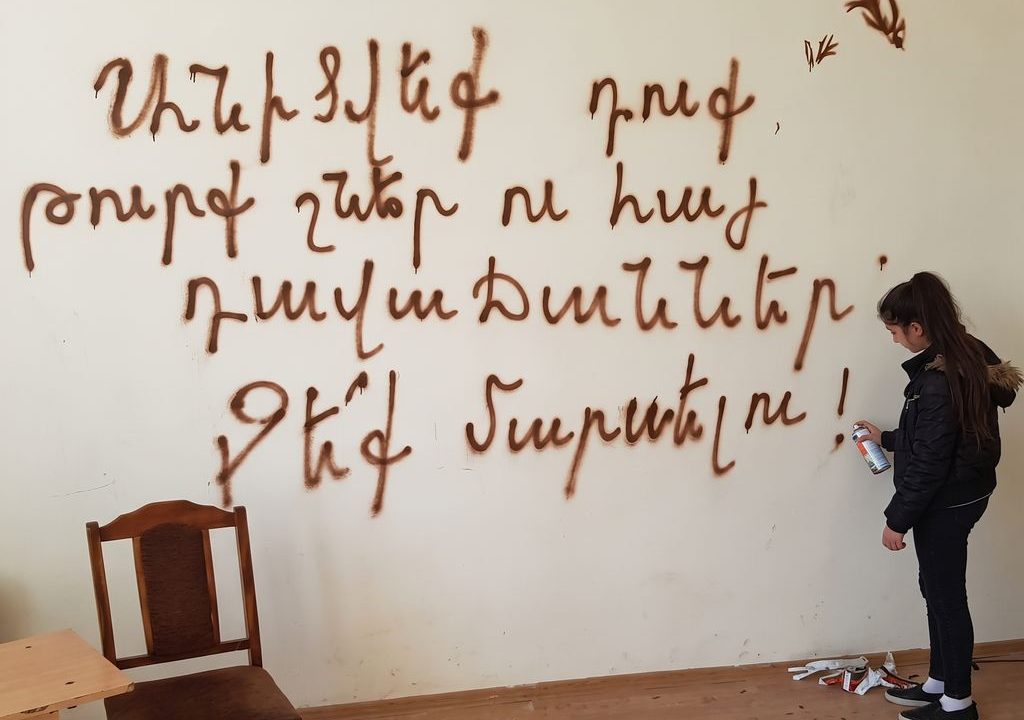 Անիծյեք դուք,
թուրք շներ ու հայ
դավաճաններ՝
Չե՛ք մարսելու!